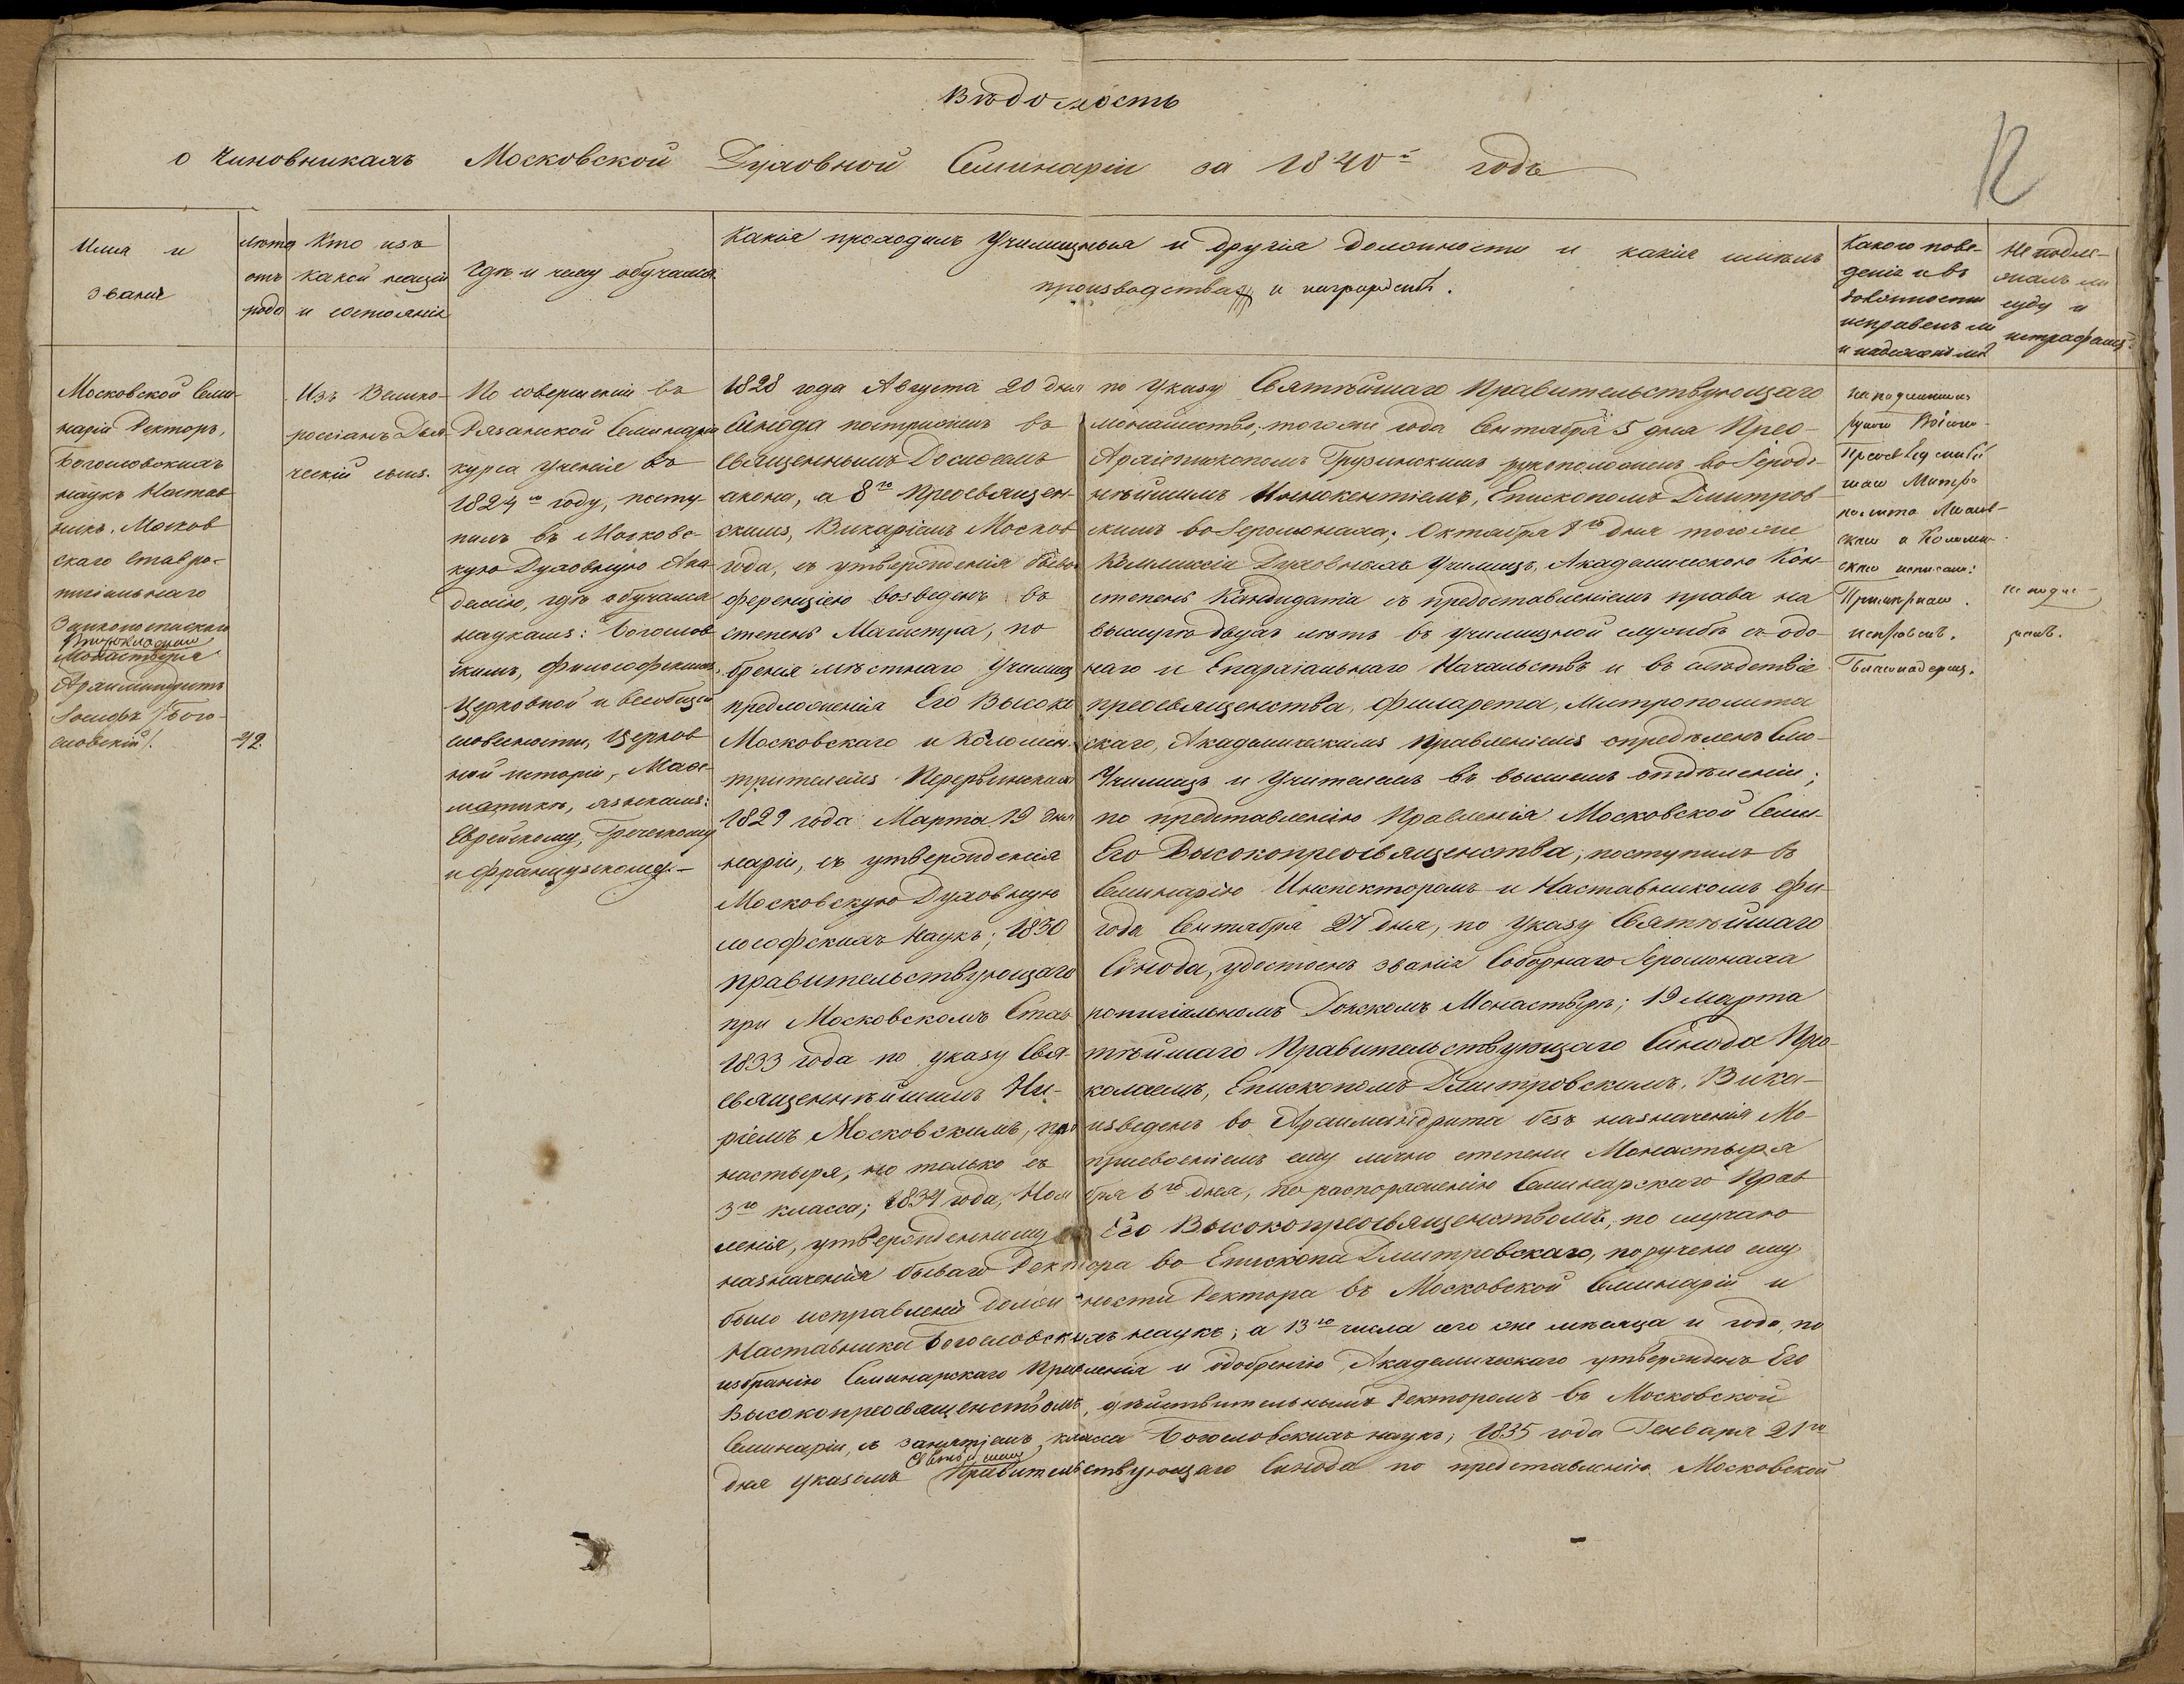 Вѣдомость
о Чиновникахъ Московской Духовной Семинаріи за 1840й годъ
12
Имя и
званіе
лѣта
отъ
роду
Кто изъ
какой націи
и состоянія
Гдѣ и чему обучался
Какія проходилъ Училищныя и другія должности и какія имѣлъ
производства и награжденія.
Какого пове-
денія и въ
должности
исправенъ ли
и надеженъ ли
Не подле-
жалъ ли
суду и
штрафамъ.
Московской Семи-
наріи Ректоръ,
Богословскихъ
наукъ Настав
никъ, Москов
скаго Ставро-
пигіальнаго
Заиконоспасскаго
Монастыря
Архимандритъ
Іосифъ /Бого-
словскій/.
42.
Изъ Велико-
россіанъ Дья-
ческій сынъ.
По совершеніи въ
Рязанской Семинаріи
курса ученія въ
1824мъ году, посту-
пилъ въ Московс-
кую Духовную Ака-
демію, гдѣ обучался
наукамъ: Богослов
скимъ, Философскимъ,
Церковной и всеобщей
словесности, Церков
ной исторіи, Маѳе-
матикѣ, языкамъ:
Еврейскому, Греческому
и французскому.-
1828 года Августа 20 дня по Указу Святѣйшаго Правительствующаго
Сѵнода постриженъ въ монашество, тогоже года Сентября 5 дня Прео-
священнымъ Досиѳеемъ Архіепископомъ Грузинскимъ рукоположенъ во Іероді-
акона, а 8го Преосвящен-нѣйшимъ Иннокентіемъ, Епископомъ Дмитров
скимъ, Викаріемъ Москов скимъ во Іеромонаха; Октября 1го дня тогоже
года, съ утвержденія бывшей Коммиссіи Духовныхъ Училищъ, Академическою Кон-
ференціею возведенъ въ степень Кандидата съ предоставленіемъ права на
степень Магистра, по выслугѣ двухъ лѣтъ въ училищной службѣ съ одо-
бренія мѣстнаго Училищ наго и Епархіальнаго Начальствъ и въ слѣдствіе
предложенія Его Высоко преосвященства, Филарета, Митрополита
Московскаго и Коломен. скаго, Академическимъ Правленіемъ опредѣленъ Смо-
трителемъ Перервинскихъ Училищъ и Учителемъ въ высшемъ отдѣленіи;
1829 года Марта 19 дня по представленію Правленія Московской Семи-
наріи, съ утвержденія Его Высокопреосвященства, поступилъ въ
Московскую Духовную Семинарію Инспекторомъ и Наставникомъ Фи-
лософскихъ Наукъ; 1830 года Сентября 27 дня, по Указу Святѣйшаго
Правительствующаго Сѵнода, удостоенъ званія Соборнаго Іеромонаха
при Московскомъ Став ропигіальномъ Донскомъ Монастырѣ; 19 Марта
1833 года по указу Свя- тѣйшаго Правительствующаго Сѵнода Прео-
священнѣйшимъ Ни- колаемъ, Епископомъ Дмитровскимъ, Вика-
ріемъ Московскимъ, про изведенъ во Архимандрита безъ назначенія Мо-
настыря, но только съ присвоеніемъ ему лично степени Монастыря
3го класса; 1834 года, Ноя бря 6го дня, по распоряженію Семинарскаго Прав
ленія, утвержденному Его Высокопреосвященствомъ, по случаю
назначенія бывшаго Ректора во Епископа Дмитровскаго, поручено ему
было исправленіе должности Ректора въ Московской Семинаріи и
Наставника Богословскихъ наукъ; а 13го числа сего же мѣсяца и года, по
избранію Семинарскаго Правленія и одобренію Академическаго утвержденъ Его
Высокопреосвященствомъ, дѣйствительнымъ Ректоромъ въ Московской
Семинаріи, съ занятіемъ класса Богословскихъ наукъ; 1835 года Генваря 21го
Святѣйшаго
дня указомъ Правительствующаго Сѵнода по представленію Московской
исправенъ.
Благонадеженъ.
не подле-
жалъ.